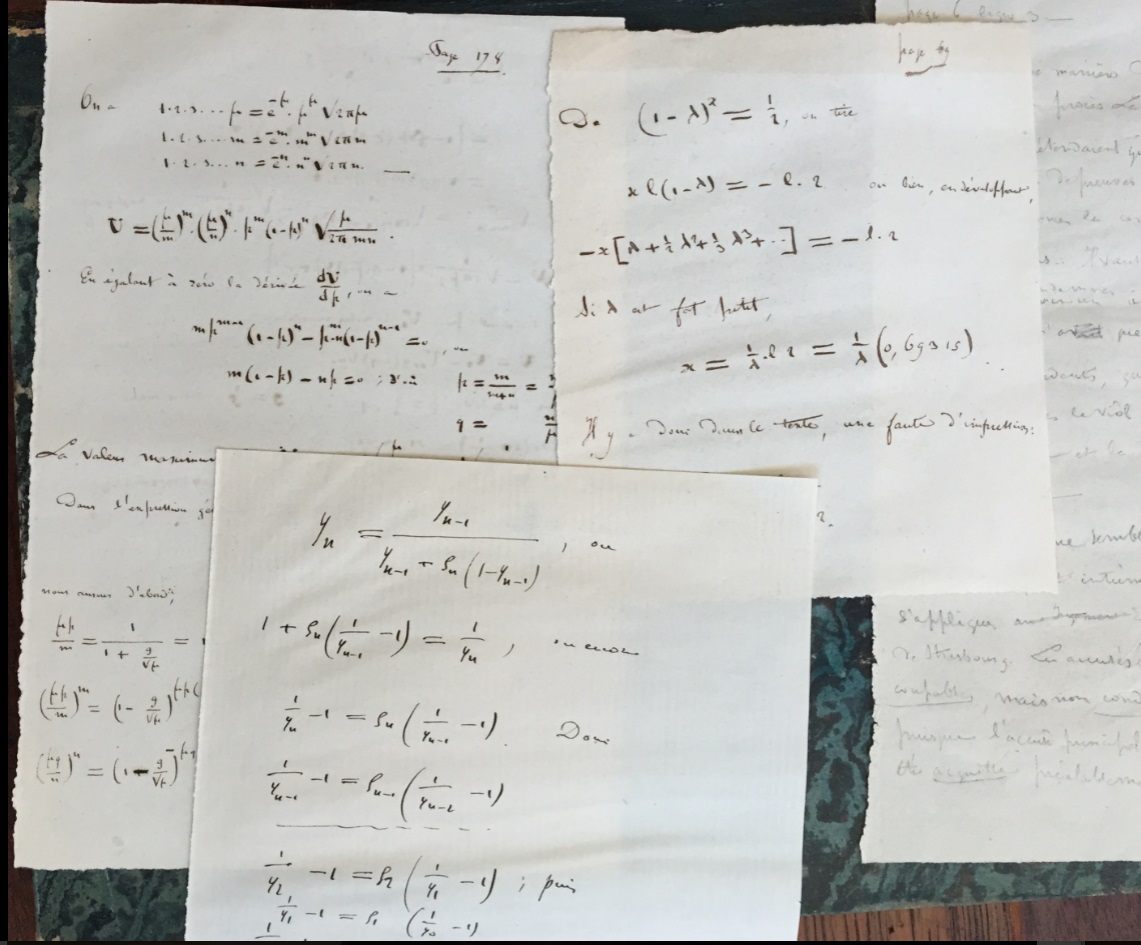 Page 178
On a 1.2.3....μ = e^-μ. μ^μ √2πμ
1.2.3....m = e^-m. m^m √2πm
1.2.3....n = e^-n. n^n √2πn.
U = (μ/m)^m. (μ/n)^n. p^m (1-p)^n √μ/2π mn.
En égalant à zéro la dérivée dU/dp, on a
mp^m-1 (1-p)^n - p^m n(1-p)^n-1 = 0, ou
m(1-p) - np = 0 ; d'où p = m/m+n =
q = n/μ
La valeur maximum
Dans l'expression gé
nous aurons d'abord,
μp/m = 1/1 + g/√μ =
(μp/m)^m = (1 - g/√μ)^μp(
(μq/n)^n = (1 - g/√μ)^-μq
page 69
De (1-λ)^x = 1/2, on tire
x l(1-λ) = - l. 2 ou bien, en développant,
-x[λ + 1/2 λ² + 1/3 λ³ + ...] = - l. 2
Si λ est fort petit,
x = 1/λ . l 2 = 1/λ (0,69315).
Il y a donc dans le texte, une faute d'impression:
2.
y_n = y_n-1 / y_n-1 + ρ_n (1-y_n-1) , ou
1 + ρ_n (1/y_n-1 - 1) = 1/y_n , ou encore
1/y_n - 1 = ρ_n (1/y_n-1 - 1). Donc
1/y_n-1 - 1 = ρ_n-1 (1/y_n-2 - 1)
1/y_2 - 1 = ρ_2 (1/y_1 - 1) ; puis
1/y_1 - 1 = ρ_1 (1/y_0 - 1)
page 6 ligne 3
manière
procès
étendaient
de preuves
s'appliquer
de Strasbourg. Les accusés
coupables, mais non cond
puisque l'accusé principal
été acquitté